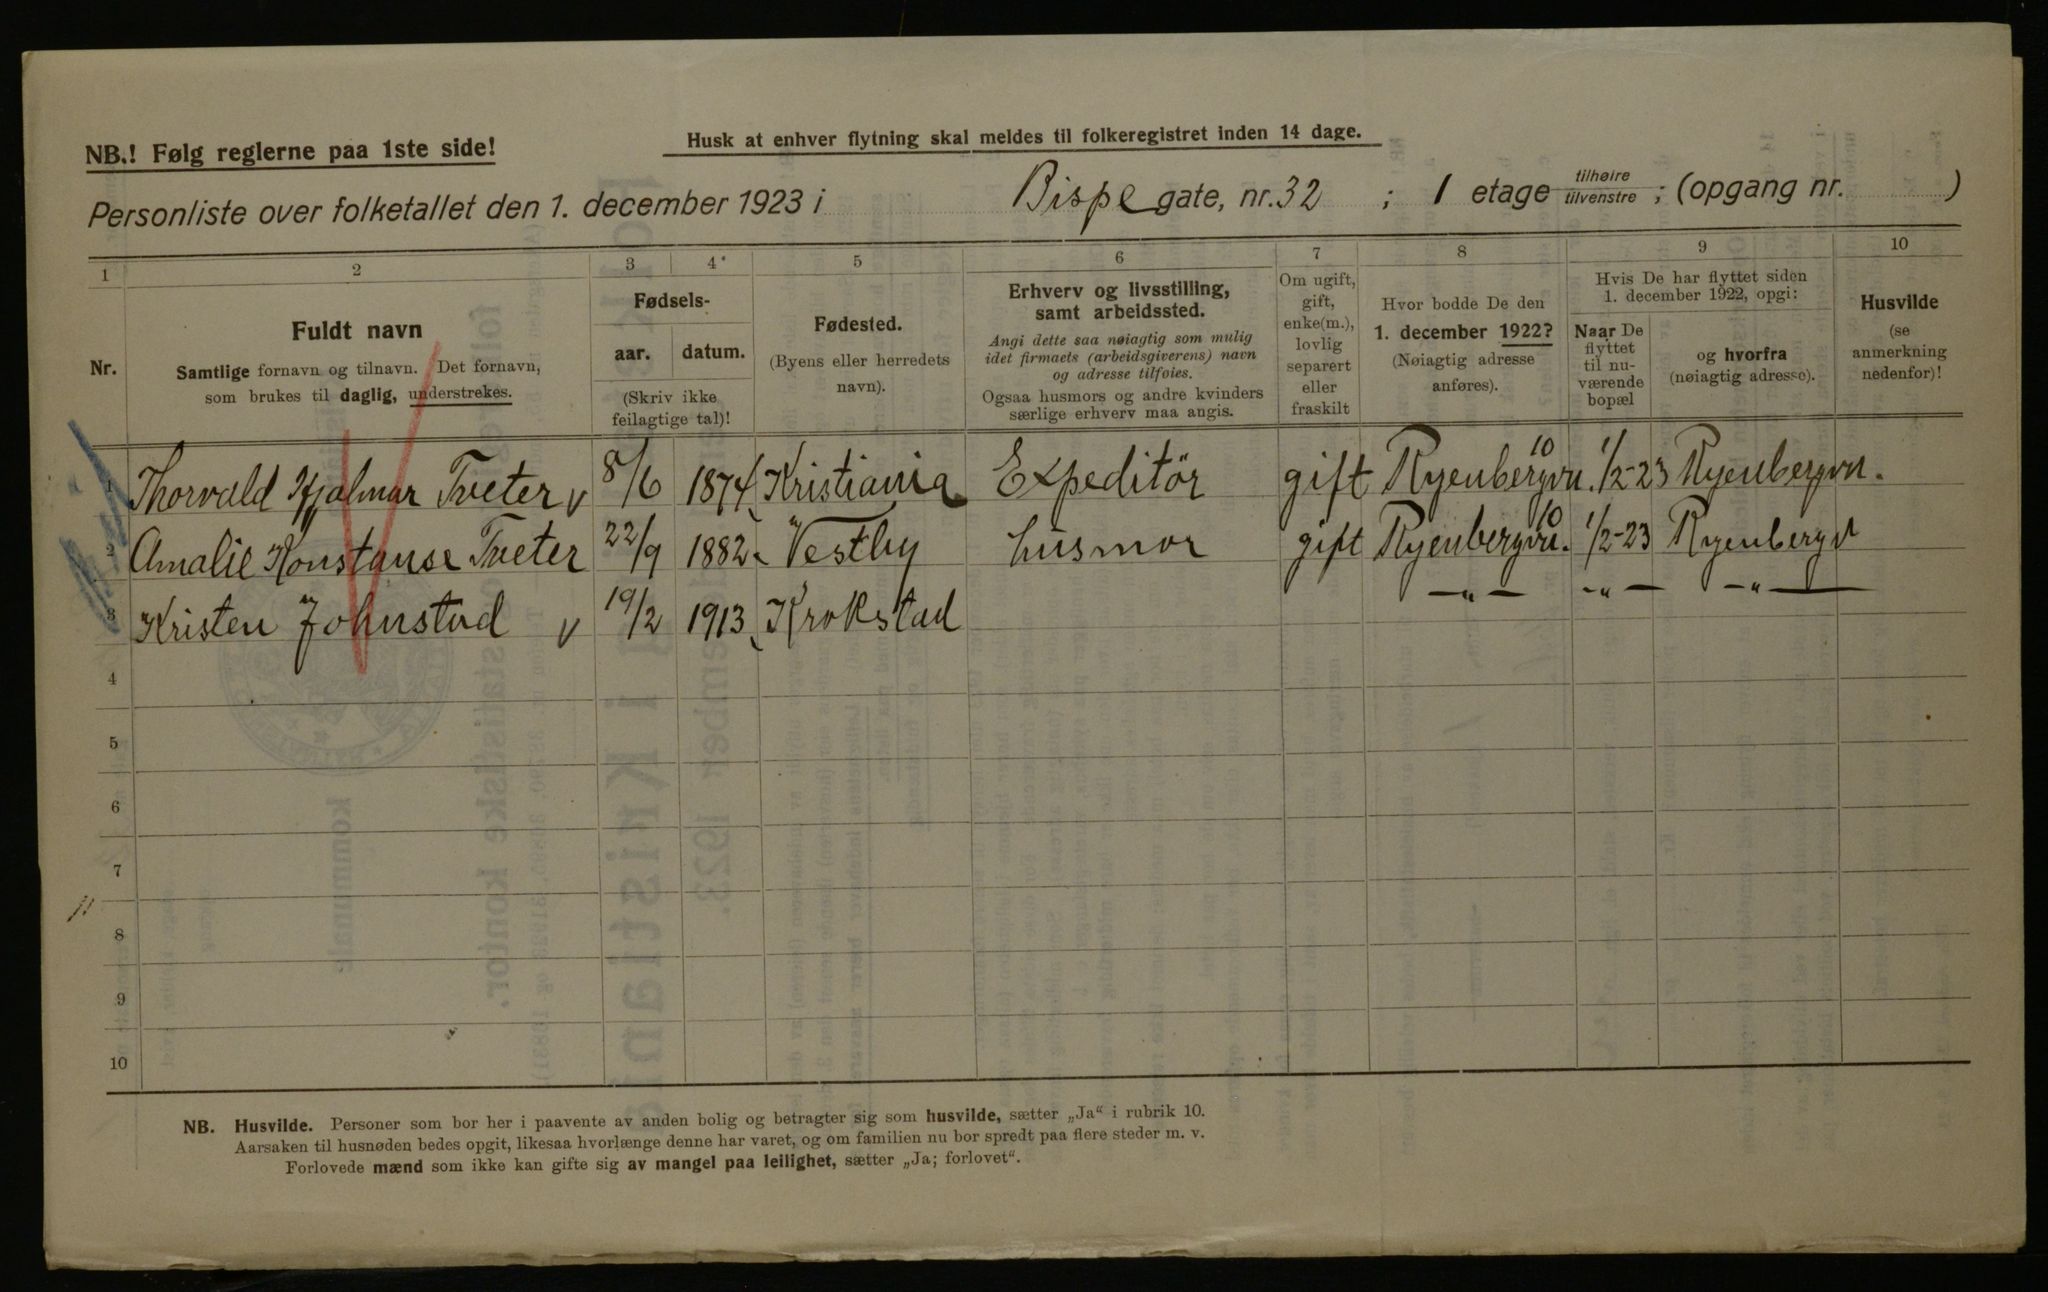 NB.! Følg reglerne paa 1ste side!
Husk at enhver flytning skal meldes til folkeregistret inden 14 dage.
Personliste over folketallet den 1. december 1923 i Bispe gate, nr. 32 ; 1 etage tilhøire tilvenstre ; (opgang nr. )
1 2 3 4 5 6 7 8 9 10
Nr.
Fuldt navn
Samtlige fornavn og tilnavn. Det fornavn,
som brukes til daglig, understrekes.
Fødsels-
aar. datum.
(Skriv ikke
feilagtige tal)!
Fødested.
(Byens eller herredets
navn).
Erhverv og livsstilling,
samt arbeidssted.
Angi dette saa nøiagtig som mulig
idet firmaets (arbeidsgiverens) navn
og adresse tilføies.
Ogsaa husmors og andre kvinders
særlige erhverv maa angis.
Om ugift,
gift,
enke(m.),
lovlig
separert
eller
fraskilt
Hvor bodde De den
1. december 1922?
(Nøiagtig adresse
anføres).
Hvis De har flyttet siden
1. december 1922, opgi:
Naar De
flyttet
til nu-
værende
bopæl
og hvorfra
(nøiagtig adresse).
Husvilde
(se
anmerkning
nedenfor)!
1 Thorvald Hjalmar Tveter v 8/6 1874 Kristiania Expeditör gift Ryenbergvn. 10 1/2-23 Ryenbergvn.
2 Amalie Konstanse Tveter 22/9 1882 Vestby husmor gift Ryenbergvn. 10 1/2-23 Ryenbergv
3 Kristen Johnstud v 19/2 1913 Krokstad -„- „- -„-
4
5
6
7
8
9
10
NB. Husvilde. Personer som bor her i paavente av anden bolig og betragter sig som husvilde, sætter „Ja“ i rubrik 10.
Aarsaken til husnøden bedes opgit, likesaa hvorlænge denne har varet, og om familien nu bor spredt paa flere steder m. v.
Forlovede mænd som ikke kan gifte sig av mangel paa leilighet, sætter „Ja; forlovet“.